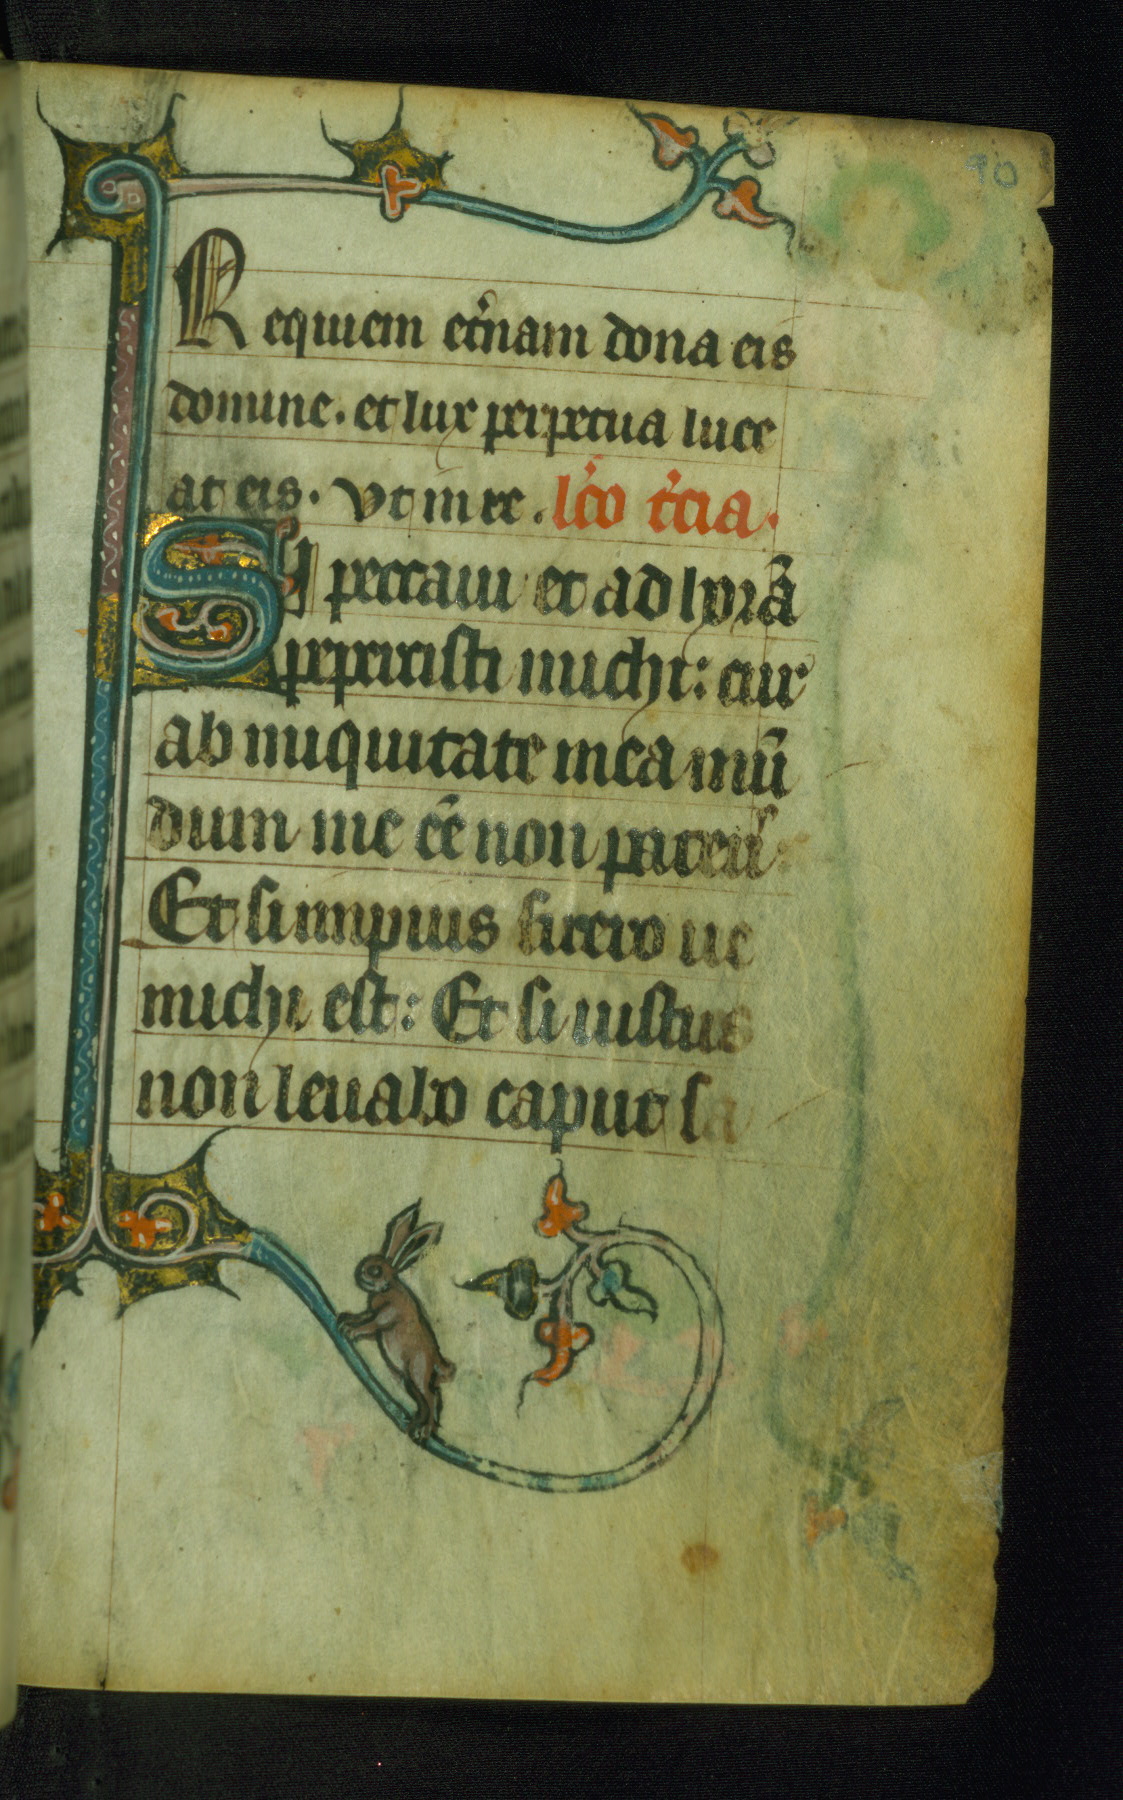 90
Requiem et̾nam dona eis
domine. et lux perpetua luce
at eis. Vt in ec. lc̾o t̾cia.
Si peccaui et ad horā
pepercisti michi: cur
ab iniquitate mea mū
dum me ēē non pateris.
Et si impius fuero ue
michi est: Et si iustus
non leuabo caput sa